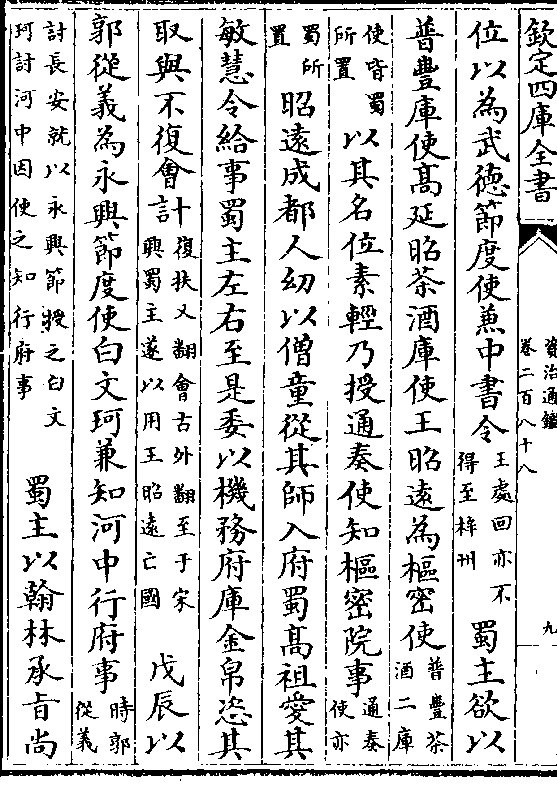 欽定四庫全書
資治通鑑
卷二百八十八
九
位以為武德節度使兼中書令王處回亦不
得至梓州蜀主欲以
普豐庫使髙延昭茶酒庫使王昭遠為樞密使普豐茶
酒二庫
使皆蜀
所置以其名位素輕乃授通奏使知樞密院事通奏
使亦
蜀所
置昭遠成都人幼以僧童從其師入府蜀髙祖愛其
敏慧令給事蜀主左右至是委以機務府庫金帛恣其
取與不復會計復扶又翻會古外翻至于宋
興蜀主遂以用王昭遠亡國戊辰以
郭從義為永興節度使白文珂兼知河中行府事時郭
從義
討長安就以永興節授之白文
珂討河中因使之知行府事蜀主以翰林承旨尚